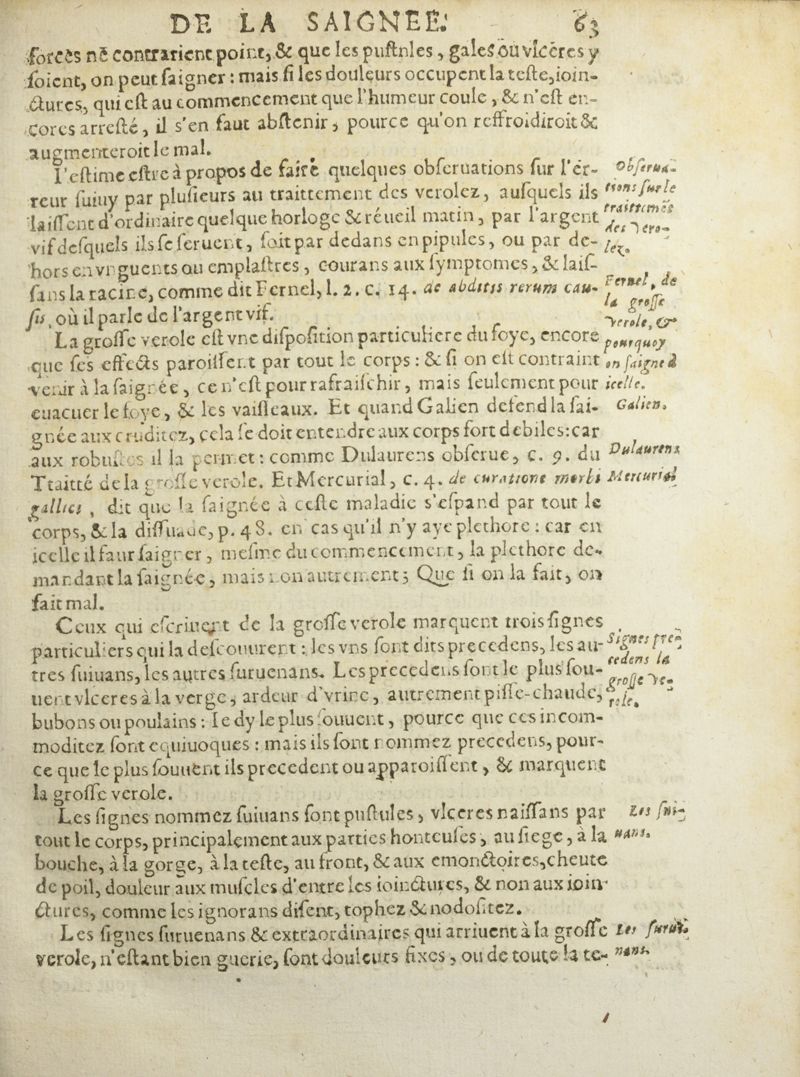 DE LA SAIGNEE. 63
forces nẽ contrarient point, & que les puſtules, gales ou vlceres y
ſoient, on peut ſaigner : mais ſi les douleurs occupent la teſte, ioin-
ctures, qui eſt au commencement que l'humeur coule, & n'eſt en-
cores arreſté, il s'en faut abſtenir, pource qu'on reffroidiroit &
augmenteroit le mal.
I'eſtime eſtre à propos de faire quelques obſeruations ſur l'er-
reur ſuiuy par pluſieurs au traittement des verolez, auſquels ils
laiſſent d'ordinaire quelque horloge & réueil matin, par l'argent
vif deſquels ils ſe ſeruent, ſoit par dedans en pipules, ou par de-
hors en vnguents ou emplaſtres, courans aux ſymptomes, & laiſ-
ſans la racine, comme dit Fernel, l. 2. c. 14. de abditis rerum cau-
ſis, où il parle de l'argent vif.
La groſſe verole eſt vne diſpoſition particuliere du foye, encore
que ſes effects paroiſſent par tout le corps : & ſi on eſt contraint
venir à la ſaignée, ce n'eſt pour rafraiſchir, mais ſeulement pour
euacuer le foye, & les vaiſſeaux. Et quand Galien defend la ſai-
gnée aux cruditez, cela ſe doit entendre aux corps fort debiles : car
aux robuſtes il la permet : comme Dulaurens obſerue, c. 9. du
Ttaitté de la groſſe verole. Et Mercurial, c. 4. de curatione morbi
gallici, dit que la ſaignée à ceſte maladie s'eſpand par tout le
corps, & la diſſuade, p. 48. en cas qu'il n'y aye plethore : car en
icelle il faut ſaigner, meſme du commencement, la plethore de-
mandant la ſaignée, mais non autrement ; Que ſi on la fait, on
fait mal.
Ceux qui eſcriuent de la groſſe verole marquent trois ſignes
particuliers qui la deſcouurent : les vns ſont dits precedens, les au-
tres ſuiuans, les autres ſuruenans. Les precedens ſont le plus ſou-
uent vlceres à la verge, ardeur d'vrine, autrement piſſe-chaude,
bubons ou poulains : Ie dy le plus ſouuent, pource que ces incom-
moditez ſont equiuoques : mais ils ſont nommez precedens, pour-
ce que le plus ſouuent ils precedent ou apparoiſſent, & marquent
la groſſe verole.
Les ſignes nommez ſuiuans ſont puſtules, vlceres naiſſans par
tout le corps, principalement aux parties honteuſes, au ſiege, à la
bouche, à la gorge, à la teſte, au front, & aux emonctoires, cheute
de poil, douleur aux muſcles d'entre les ioinctures, & non aux ioin-
ctures, comme les ignorans diſent, tophez & nodoſitez.
Les ſignes ſuruenans & extraordinaires qui arriuent à la groſſe
verole, n'eſtant bien guerie, ſont douleurs fixes, ou de toute la te-
Obſerua-
tions ſur le
traittemẽt
des vero-
lez.
Fernel, de
la groſſe
verole, &
pourquoy
on ſaigne à
icelle.
Galien.
Dulaurens
Mercurial
Signes pre-
cedens la
groſſe ve-
role.
Les ſui-
uans.
Les ſurue-
nans.